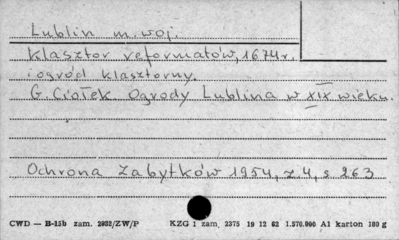 Lublin m. woj.
Klasztor reformatów, 1674 r.
i ogród klasztorny.
G. Ciołek Ogrody Lublina w XIX wieku.
Ochrona Zabytków 1954, z. 4, s 263
CWD — B-15b zam. 2982/ZW/P KZG 1 zam. 2375 19 12 62 1.570.000 A1 karton 180 g